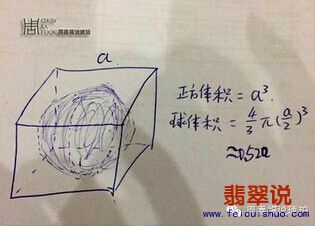 CHOW
KA
FOOK
a
正方体积 = a³
球体积 = 4/3 π(a/2)³
≈0.52a
翡翠说
www.feicuishuo.com